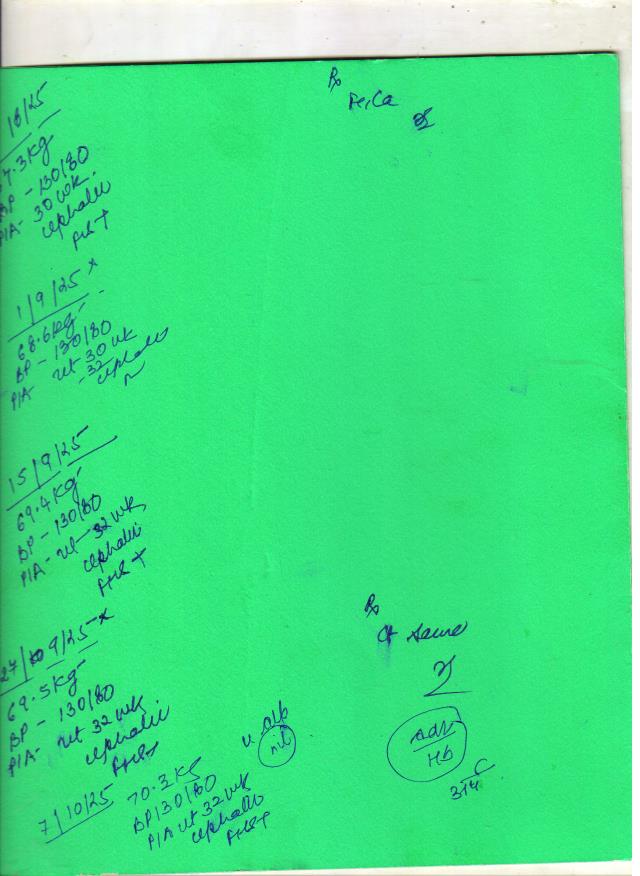 18/25
7.3kg
BP - 130/80
P/A - 30 wk.
cephalic
FHS +
1/9/25 x
68.6kg
BP - 130/80
P/A ut 30 wk
- 32
cephalic
15/9/25
69.4kg
BP - 130/80
P/A - ut - 32 wk
cephalic
FHS +
27/9/25 x
69.5kg
BP - 130/80
P/A - ut 32 wk
cephalic
FHS+
7/10/25
70.3kg
BP 130/80
P/A ut 32 wk
cephalic
FHS+
u alb
nil
Rx
Fe, Ca
Rx
Ct same
Adv
Hb